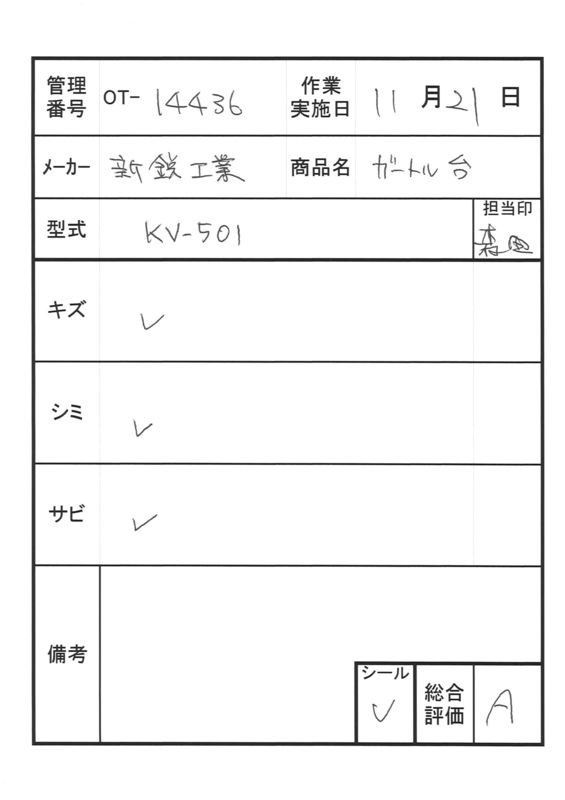 管理番号 OT- 14436 作業実施日 11月21日
メーカー 新鋭工業 商品名 ガートル台
型式 KV-501 担当印
キズ ✓
シミ ✓
サビ ✓
備考
シール ✓ 総合評価 A